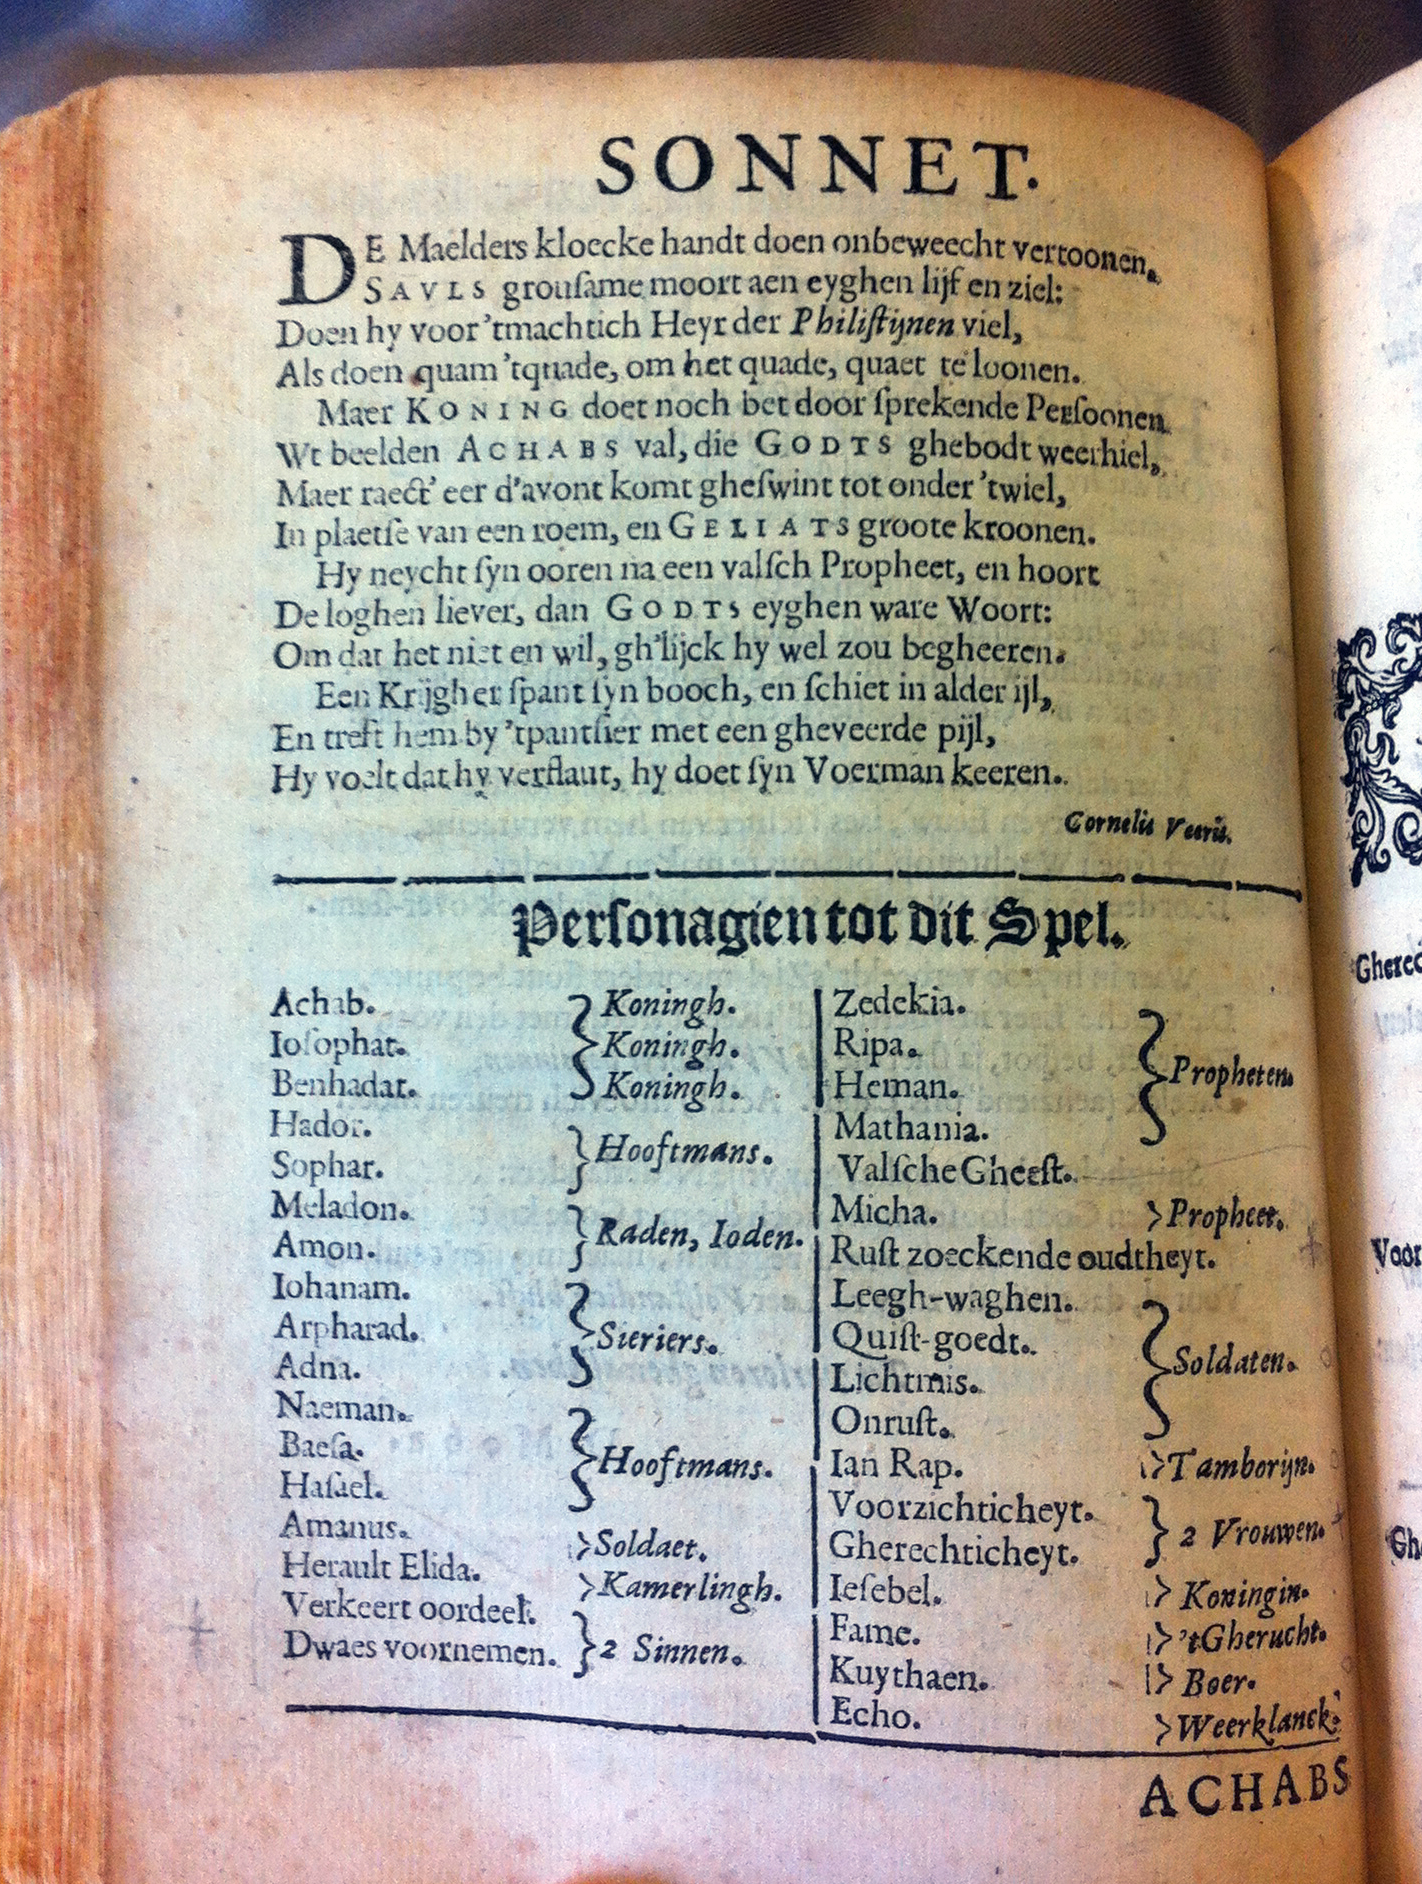 SONNET.
DE Maelders kloecke handt doen onbeweecht vertoonen.
SAVLS grouſame moort aen eyghen lijf en ziel:
Doen hy voor 'tmachtich Heyr der Philiſtijnen viel,
Als doen quam 'tquade, om het quade, quaet te loonen.
Maer KONING doet noch bet door ſprekende Perſoonen
Wt beelden ACHABS val, die GODTS ghebodt weerhiel,
Maer raect' eer d'avont komt gheſwint tot onder 'twiel,
In plaetſe van een roem, en GELIATS groote kroonen.
Hy neycht ſyn ooren na een valſch Propheet, en hoort
De loghen liever, dan GODTS eyghen ware Woort:
Om dat het niet en wil, gh'lijck hy wel zou begheeren.
Een Krijgher ſpant ſyn booch, en ſchiet in alder ijl,
En treft hem by 'tpantſier met een gheveerde pijl,
Hy voelt dat hy verflaut, hy doet ſyn Voerman keeren.
Cornelis
Perſonagien tot dit Spel.
Achab. Koningh.
Ioſophat. Koningh.
Benhadat. Koningh.
Hador.
Hooftmans.
Sophar.
Meladon.
Raden, Ioden.
Amon.
Iohanam.
Arpharad. Sieriers.
Adna.
Naeman.
Baeſa. Hooftmans.
Haſael.
Amanus. Soldaet.
Herault Elida. Kamerlingh.
Verkeert oordeel.
2 Sinnen.
Dwaes voornemen.
Zedekia.
Ripa.
Propheten.
Heman.
Mathania.
Valſche Gheeſt.
Micha. Propheet.
Ruſt zoeckende oudtheyt.
Leegh-waghen.
Quiſt-goedt.
Soldaten.
Lichtmis.
Onruſt.
Ian Rap. Tamborijn.
Voorzichticheyt.
2 Vrouwen.
Gherechticheyt.
Ieſebel. Koningin.
Fame. 'tGherucht.
Kuythaen. Boer.
Echo. Weerklanck.
ACHABS